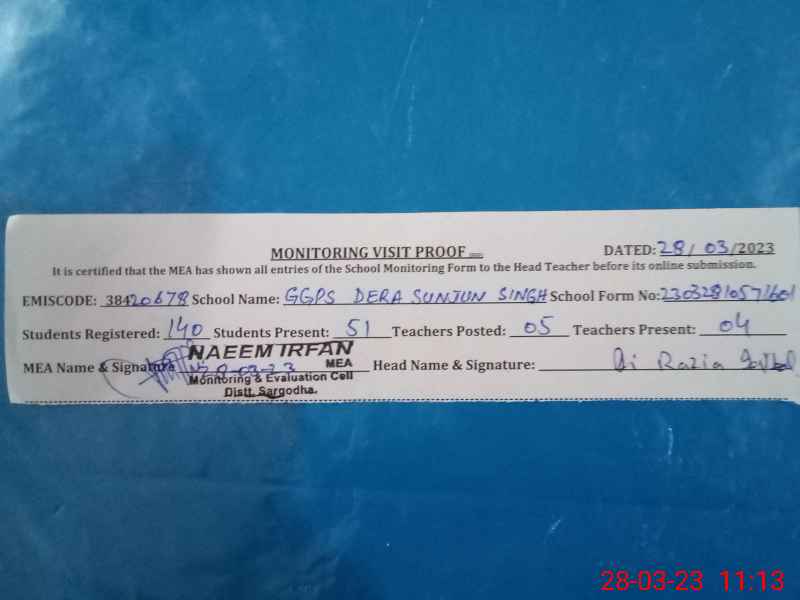 MONITORING VISIT PROOF DATED: 28/03/2023
It is certified that the MEA has shown all entries of the School Monitoring Form to the Head Teacher before its online submission.
EMISCODE: 38420678 School Name: GGPS DERA SUNJUN SINGH School Form No: 23032810571601
Students Registered: 140 Students Present: 51 Teachers Posted: 05 Teachers Present: 04
NAEEM IRFAN
MEA Name & Signature MEA Head Name & Signature: Razia
Monitoring & Evaluation Cell
Distt. Sargodha.
28-03-23 11:13